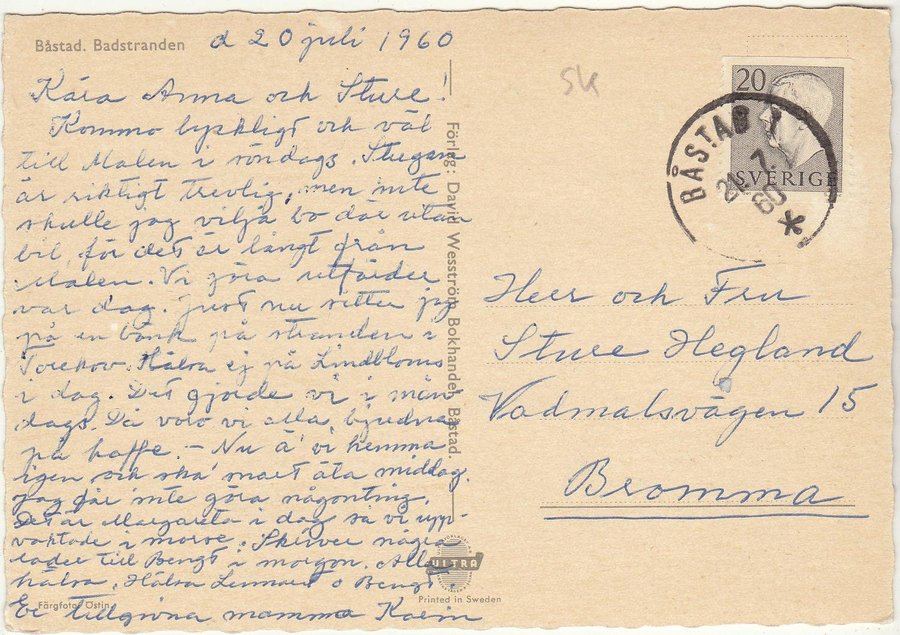 Båstad. Badstranden
d 20 juli 1960
Kära Anna och Sture!
Kommo lyckligt och väl
till Malen i söndags. Stugan
är riktigt trevlig, men inte
skulle jag vilja bo där utan
bil, för det är långt från
Malen. Vi göra utfärder
var dag. Just nu sitter jag
på en bänk på stranden i
Torekov. Hälsa ej på Lindbloms
i dag. Det gjorde vi i mån
dags. Då voro vi alla bjudna
på kaffe. – Nu ä' vi hemma
igen och ska' snart äta middag.
Jag får inte göra någonting.
Det är Margareta i dag så vi upp-
vaktade i morse. Skriver några
rader till Bengt i morgon. Alla
hälsa. Hälsa Lennart o Bengt.
Er tillgivna mamma Karin
Förlag: David Wesström Bokhandel, Båstad.
SK
20
SVERIGE
BÅSTAD 1
Herr och Fru
Sture Hegland
Vadmalsvägen 15
Bromma
ULTRA
Printed in Sweden
Färgfoto: Östin